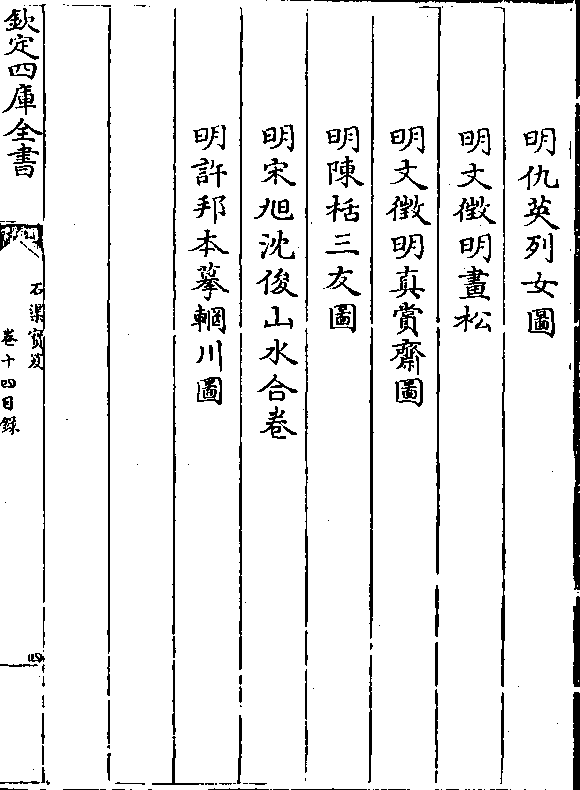 明仇英列女圖
明文徵明畫松
明文徵明真賞齋圖
明陳栝三友圖
明宋旭沈俊山水合卷
明許邦本摹輞川圖
欽定四庫全書
石渠寶笈
卷十四目錄
四